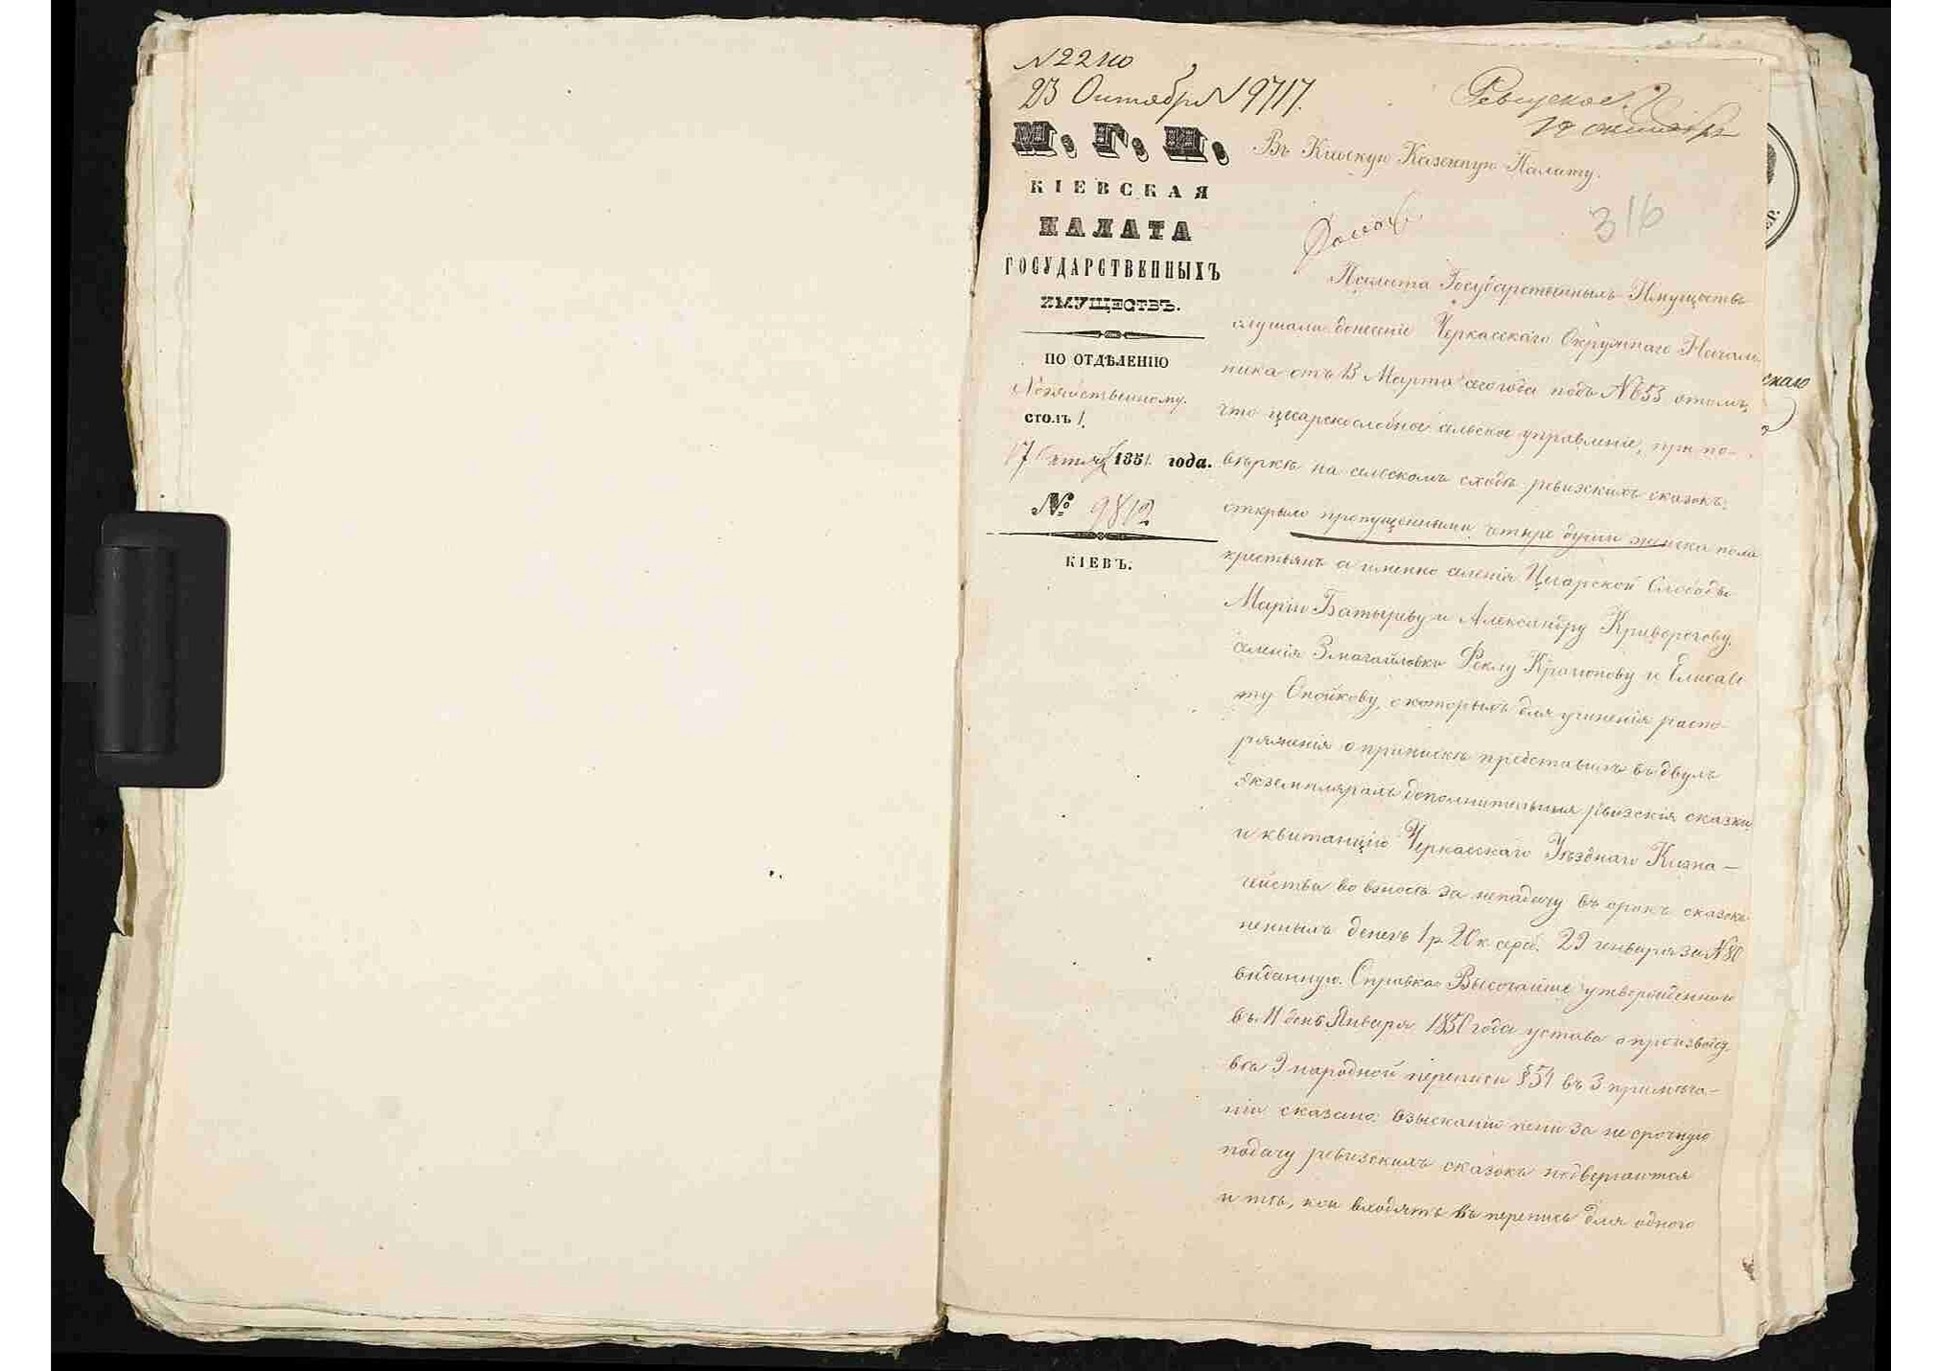 № 22110
23 Октября № 9717.
Ревизское
19 октября
М. Г. И.
КІЕВСКАЯ
ПАЛАТА
ГОСУДАРСТВЕННЫХЪ
ИМУЩЕСТВЪ.
ПО ОТДѢЛЕНІЮ
Хозяйственному.
СТОЛЪ 1.
17 1851 года.
№ 9812
КІЕВЪ.
Въ Кіевскую Казенную Палату.
316
Палата Государственныхъ Имуществъ
слушали донесеніе Черкасскаго Окружнаго Началь
ника отъ 13 Марта сего года подъ № 653 отомъ,
что цесарскослобное сельское управленіе, при по-
вѣркѣ на сельскомъ сходѣ ревизскихъ сказокъ,
открыло пропущенными четыре души женска пола
крестьянъ а именно селенія Цесарской Слободы
Марію Батыреву и Александру Криворогову,
селенія Змагайловки Феклу и Елисаве
ту Опойкову, о которыхъ для учиненія распо-
ряженія о припискѣ представилъ въ двухъ
экземплярахъ дополнительныя ревизскія сказки
и квитанцію Черкасскаго Уѣзднаго Казна-
чейства во взносѣ за неподачу въ срокъ сказокъ
пенныхъ денегъ 1 р 20 к сереб. 29 генваря за № 80
выданную. Справка: Высочайше утвержденнаго
въ 11 день Января 1850 года устава о производ
ствѣ 9 народной переписи § 54 въ 3 примѣча-
ніи сказано: взысканію пени за не срочную
подачу ревизскихъ сказокъ подвергаются
и тѣ, кои входятъ въ перепись для одного
скаго